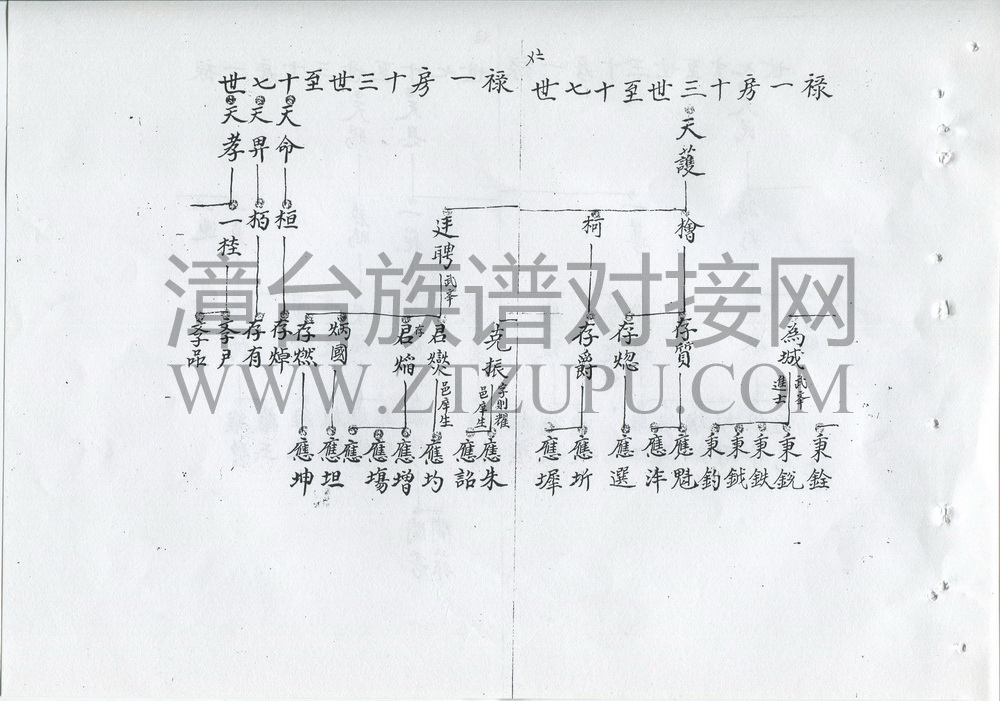 禄一房十三世至十七世
天護
檜
柯
廷聘 武宰
為城 武宰 進士
存質
存熜
存爵
克振 字則耀 邑庠生
君爕 邑庠生
君熖
炳國
秉銓
秉銳
秉鉄
秉鉞
秉鈞
應魁
應沣
應選
應圻
應墀
應朱
應詔
應均
應增
應塲
應
應坦
應坤
禄一房十三世至十七世
天命
天畀
天孝
桓
栢
一桂
存燃
存焯
存有
季尹
季品
漳台族谱对接网
WWW.ZTZUPU.COM